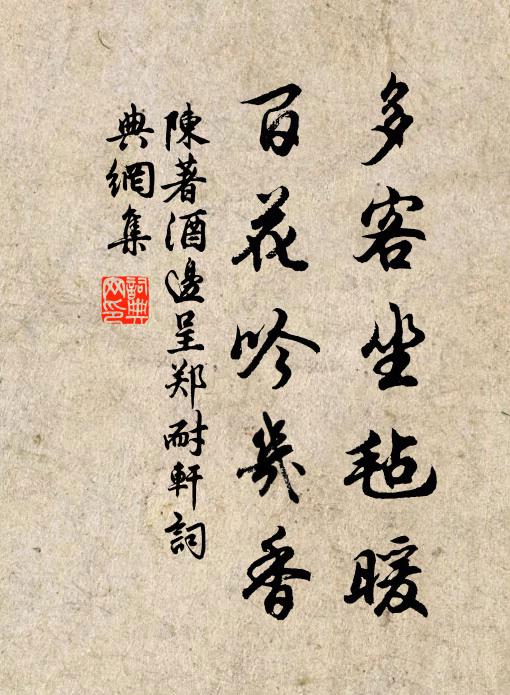 多客坐毡暖
百花吟几香
陳著酒邊呈郑耐軒詞
典網集
詞典
网印